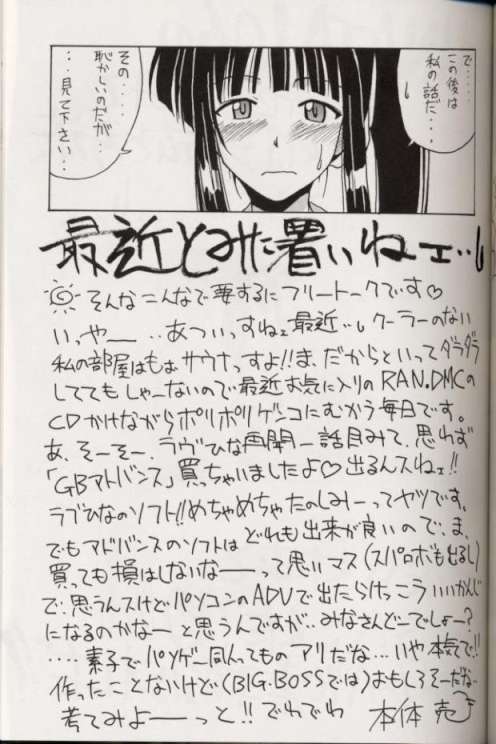 で・・・・
この後は
私の話だ・・
その・・・・
恥かしいのだが・・
・・・見て下さい・・
最近とみに暑いねェ・・
そんなこんなで要するにフリートークです♡
いっやー ・・あついっすねェ最近・・クーラーのない
私の部屋はもぉサウナっすよ!!ま、だからといってダラダラ
しててもしゃーないので最近お気に入りのRAN.DMCの
CDかけながらポリポリゲンコにむかう毎日です。
あ、そーそー、ラヴひな再開一話目みて、思わず
「GBアドバンス」買っちゃいましたよ♡出るんスねェ!!
ラブひなのソフト!!めちゃめちゃたのしみーってヤツです。
でもアドバンスのソフトはどれも出来が良いので、ま、
買っても損はしないなーーって思いマス(スパロボも出るし)
で、思うんスけどパソコンのADVで出たらけっこういいかんじ
になるのかなーと思うんですが・・みなさんどーでしょー?
・・・・素子でパソゲー同人ってものアリだな・・・いや本気で!!
作ったことないけど(BIG・BOSSでは)おもしろそーだな・・
考えてみよーーっと!!でわでわ
本体 売